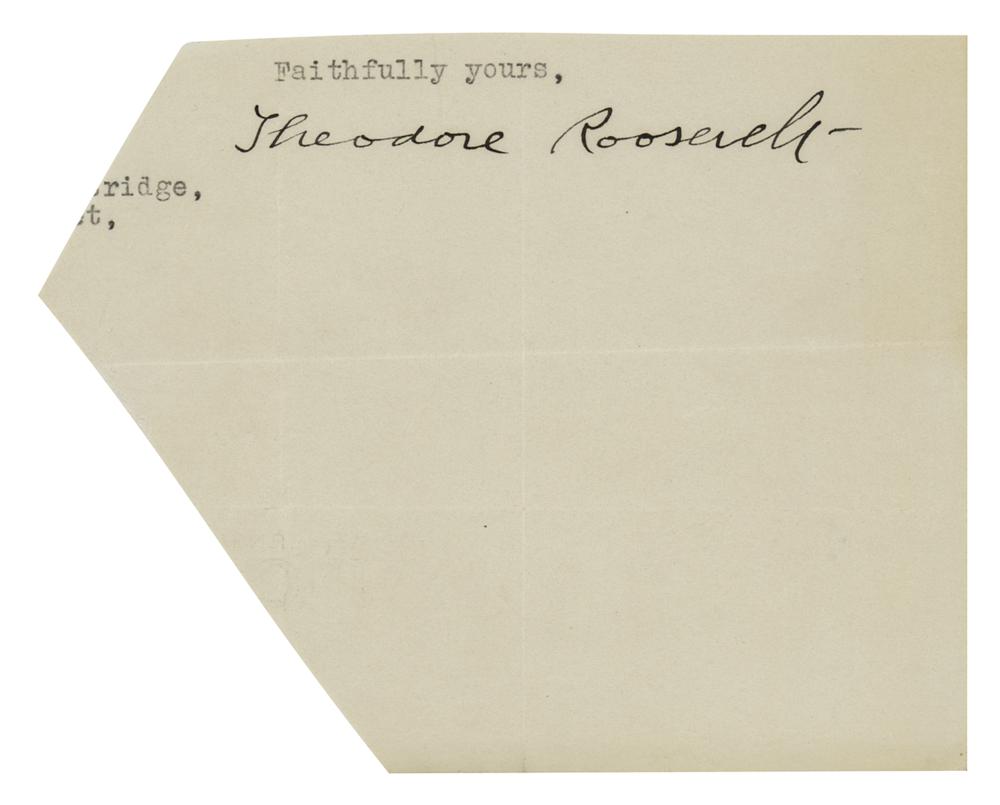 Faithfully yours,
Theodore Roosevelt
ridge,
t,